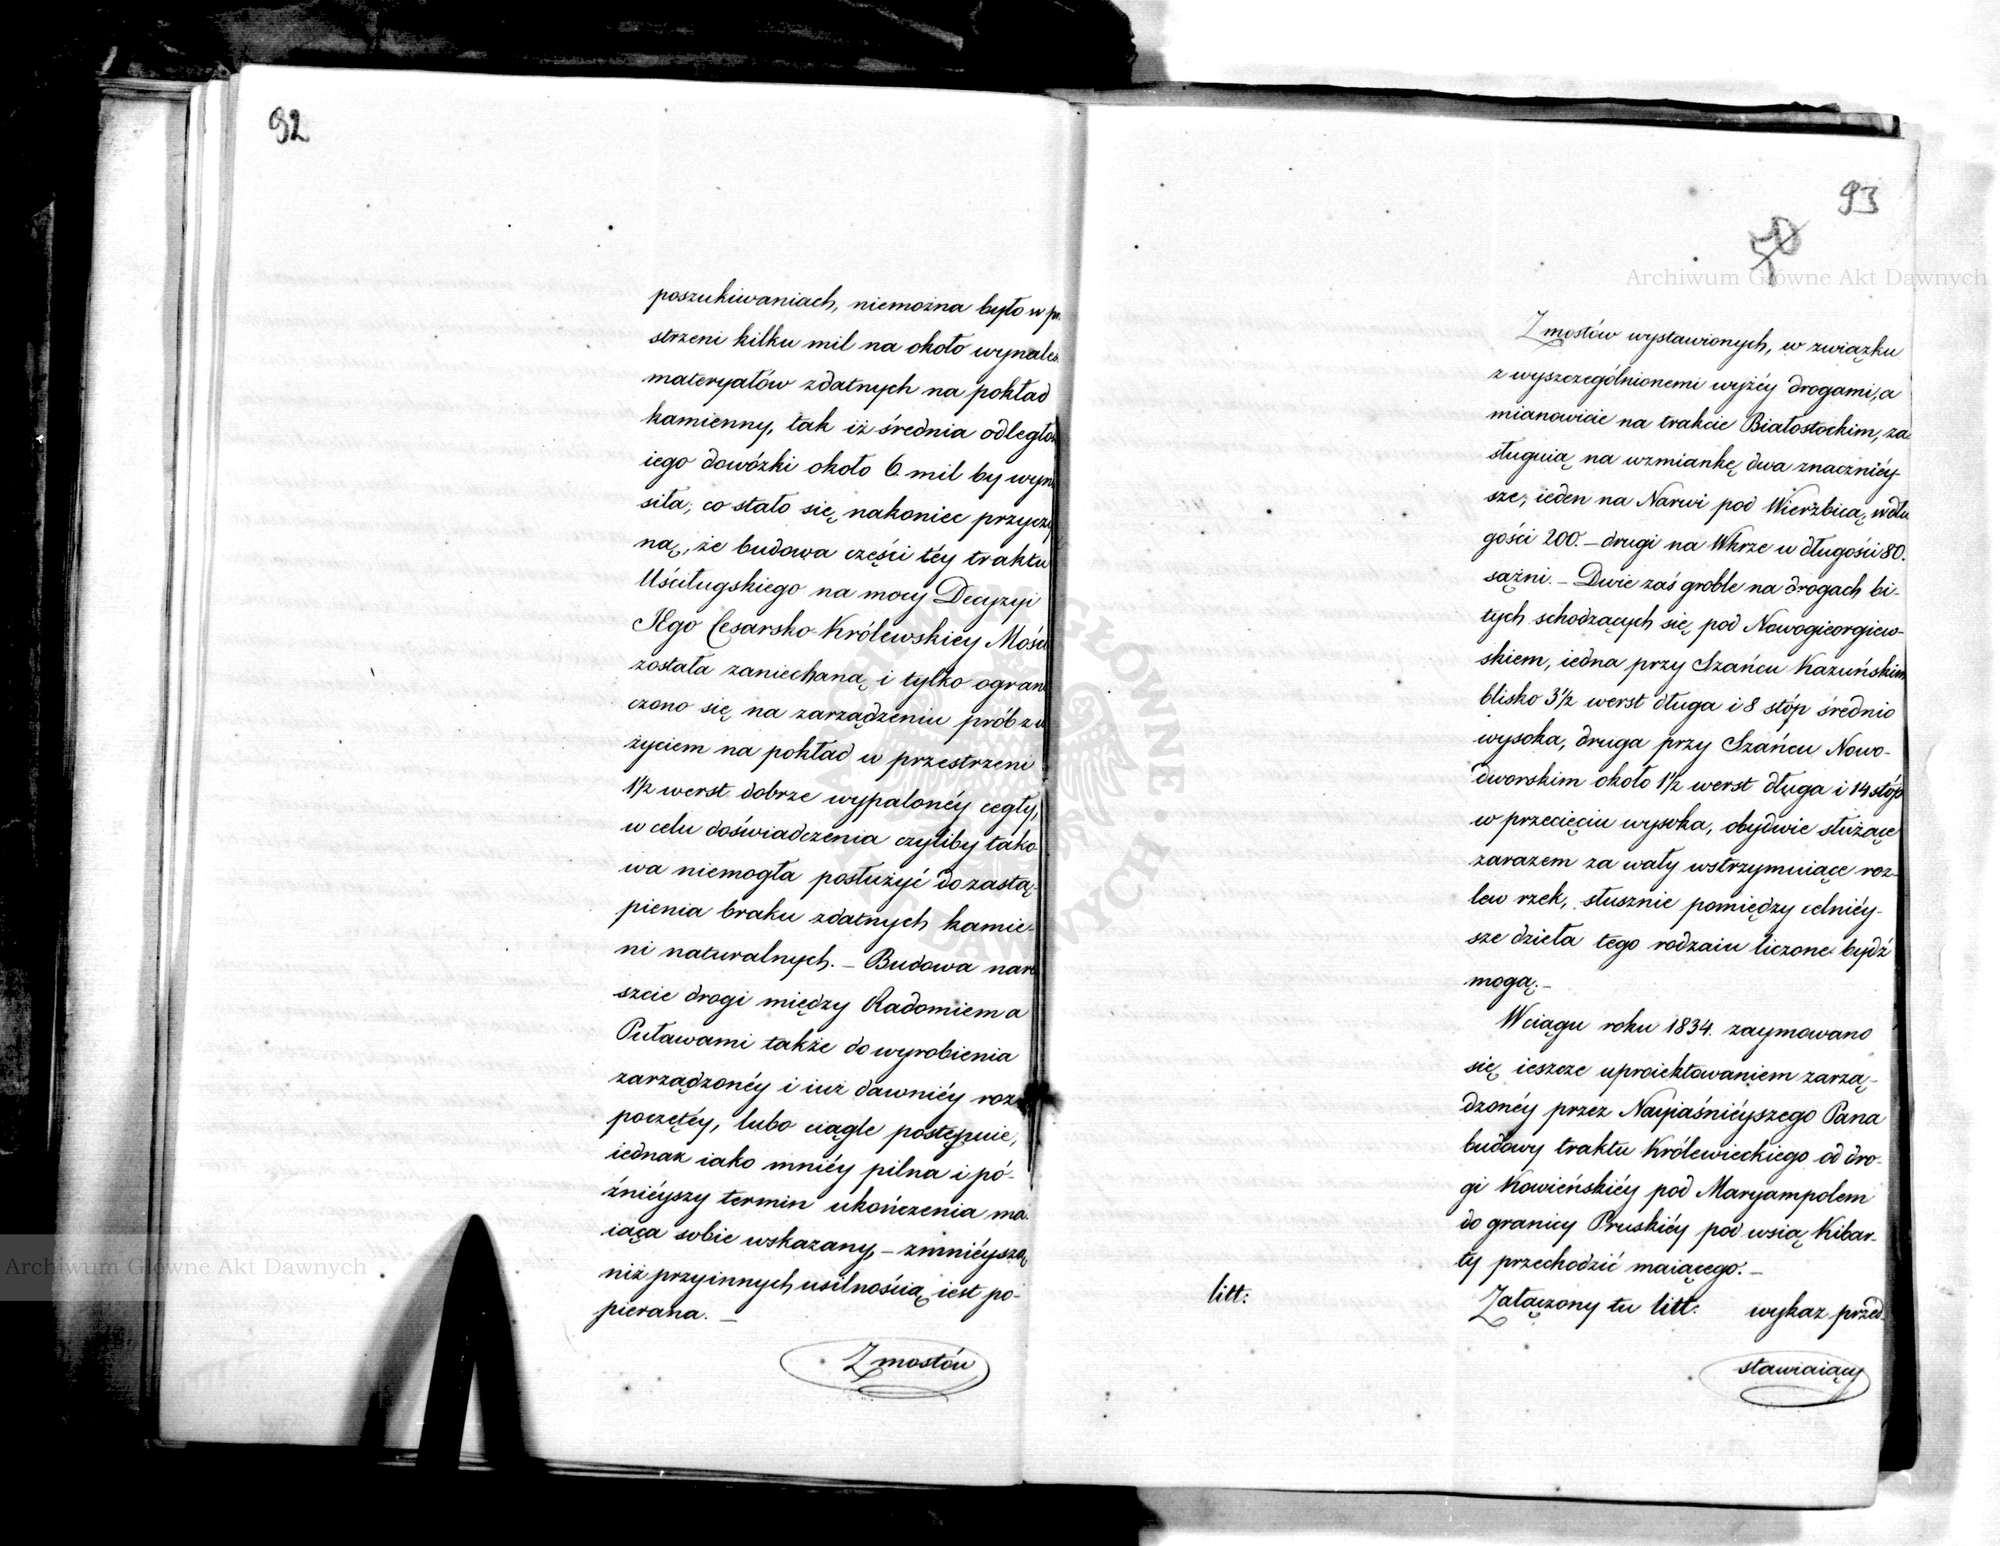 92
poszukiwaniach, niemożna było w
strzeni kilku mil na około wynale
materyałów zdatnych na pokład
kamienny, tak iż średnia odległo
iego dowózki około 6 mil by wyn
siła, co stało się nakoniec przyczy
ną, że budowa części téy traktu
Uściługskiego na mocy Decyzyi
JEgo Cesarsko-Królewskiéy Mości
została zaniechaną i tylko ograni
czono się na zarządzeniu prób z u
życiem na pokład w przestrzeni
1½ werst dobrze wypalonéy cegły,
w celu doświadczenia czyliby tako
wa niemogła posłużyć do zastą-
pienia braku zdatnych kamie-
ni naturalnych. – Budowa nare
szcie drogi między Radomiem a
Puławami także do wyrobienia
zarządzonéy i iuż dawniéy roz
poczętéy, lubo ciągle postępuie,
iednak iako mniéy pilna i pó-
źniéyszy termin ukończenia ma
iąca sobie wskazany, – zmniéyszą
niż przy innych usilnością iest po-
pierana. –
Z mostów
93
Z mostów wystawionych, w związku
z wyszczególnionemi wyżéy drogami, a
mianowicie na trakcie Białostockim, za
sługuią na wzmiankę dwa znaczniéy-
sze; ieden na Narwi pod Wierzbicą, w dłu
gości 200. – drugi na Wkrze w długości 80.
sążni. – Dwie zaś groble na drogach bi-
tych schodzących się pod Nowogieorgiew-
skiem, iedna przy Szańcu Kazuńskim
blisko 3½ werst długa i 8 stóp średnio
wysoka, druga przy Szańcu Nowo-
dworskim około 1½ werst długa i 14 stóp
w przecięciu wysoka, obydwie służące
zarazem za wały wstrzymuiące roz-
lew rzek, słusznie pomiędzy celniéy-
sze dzieła tego rodzaiu liczone bydź
mogą. –
W ciągu roku 1834. zaymowano
się ieszcze uproiektowaniem zarzą-
dzonéy przez Nayiaśniéyszego Pana
budowy traktu Królewieckiego od dro-
gi Kowieńskiéy pod Maryampolem
do granicy Pruskiéy pod wsią Kibar-
ty przechodzić maiącego. –
litt:
Załączony tu litt: wykaz przed-
stawiaiący
Archiwum Główne Akt Dawnych
Archiwum Główne Akt Dawnych